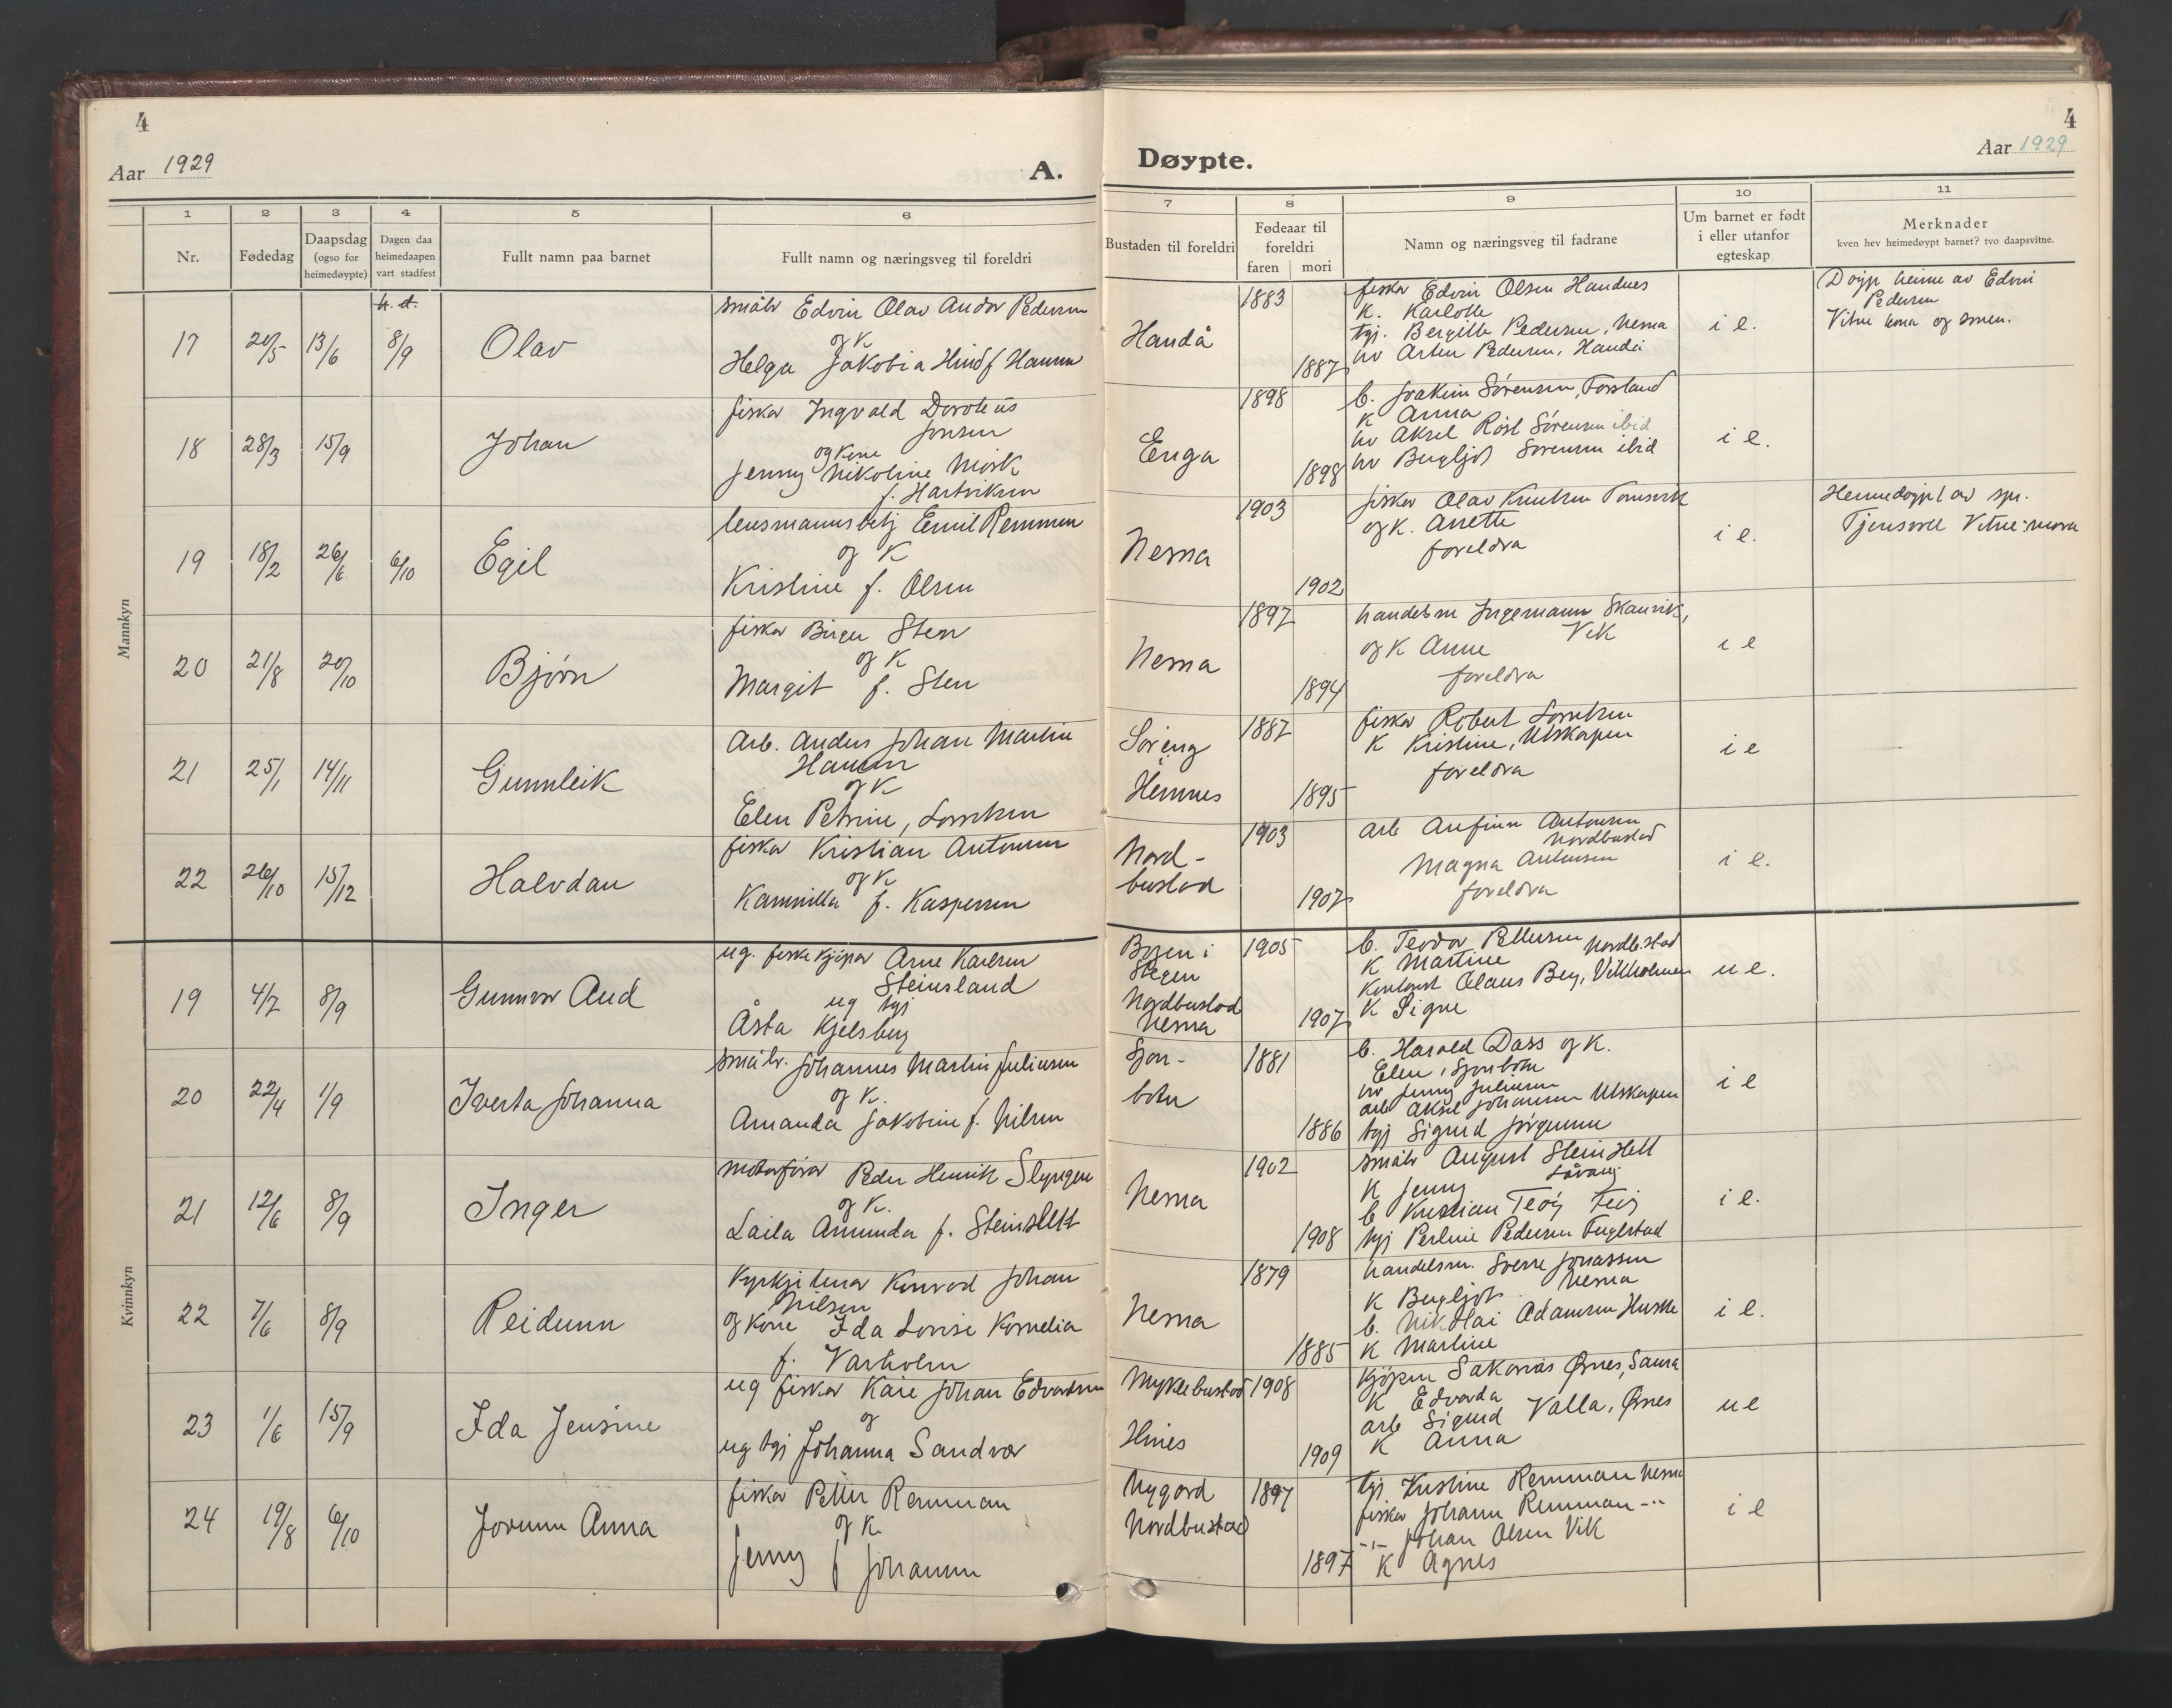 4
Aar 1929
A.
1 2 3 4 5 6
Nr.
Fødedag
Daapsdag
(ogso for
heimedøypte)
Dagen daa
heimedaapen
vart stadfest
Fullt namn paa barnet
Fullt namn og næringsveg til foreldri
Mannkyn
h. d.
17 20/5 13/6 8/9 Olav
småbr Edvin Olav Andor Pedersen
og K
Helga Jakobia Hind f Hansen
18 28/3 15/9 Johan
fiskar Ingvald Doroteus
Jonsen
og Kone
Jenny Nikoline Mørk
f. Hartviksen
19 18/2 26/6 6/10 Egil
lensmannsbetj Emil Remmen
og K
Kristine f. Olsen
20 21/8 20/10 Bjørn
fiskar Birger Sten
og K
Margit f. Sten
21 25/1 14/11 Gunnleik
Arb. Anders Johan Martin
Hansen
og K
Elen Petrine, Lorntsen
22 26/10 15/12 Halvdan
fiskar Kristian Antonsen
og K
Kammilla f. Kaspersen
Kvinnkyn
19 4/7 8/9 Gunnvor Aud
ug. fiskekjøpar Arne Karlsen
Steinsland
ug tgj
Åsta Kjelsberg
20 22/4 1/9 Iverta Johanna
småbr. Johannes Martin Juliusen
og K.
Amanda Jakobine f. Nilsen
21 12/6 8/9 Inger
motorførar Peder Henrik Slyngen
og K.
Laila Amunda f. Steinslett
22 7/6 8/9 Reidunn
Kyrkjetenar Konrad Johan
Nilsen
og Kone Ida Lovise Kornelia
f. Varholm
23 1/6 15/9 Ida Jensine
ug fiskar Kåre Johan Edvardsen
og
ug tgj Johanna Sandvær
24 19/8 6/10 Jorunn Anna
fiskar Petter Remman
og K.
Jenny f Johansen
4
Døypte.
Aar 1929
7 8 9 10 11
Bustaden til foreldri
Fødeaar til
foreldri
faren mori
Namn og næringsveg til fadrane
Um barnet er født
i eller utanfor
egteskap
Merknader
kven hev heimedøypt barnet? tvo daapsvitne.
Handå 1883 1887
fiskar Edvin Olsen Handnes
K. Karlotte
tgj. Bergitte Pedersen, Nesna
hv Arten Pedersen, Handå
i e.
Døyp heime av Edvin
Pedersen
Enga 1898 1898
b. Joakim Sørensen, Forsland
K Anna
hv Aksel Røst Sørensen ibid
hv Bergljot Sørensen ibid
i e.
Nesna 1903 1902
fiskar Olav Knutsen Tomsvik
og K. Anette
foreldra
i e.
Heimedøypt av spr.
Vitne: mora
Nesna 1897 1894
handelsm Ingemann Skauvik,
Vik
og K Anne
foreldra
i e
Søreng
i
Hemnes 1887 1895
fiskar Robert Lorntsen
K Kristine, Utskarpen
foreldra
i e
Nord-
bustad 1903 1907
arb Anfinn Antonsen
Nordbustad
Magna Antonsen
foreldra
i e.
Bogen i
Steigen
Nordbustad
Nesna 1905 1907
b. Teodor Pettersen Nordbustad
K Martine
Kontorist Olaus Berg, Vikholmen
K Signe
u e.
Sjon-
botn 1881 1886
b. Harald Dass og K.
Elen, Sjonbotn
hv Jenny Juliusen
arb Aksel Johansen Utskarpen
tgj Sigrid Jørgensen
i e
Nesna 1902 1908
småbr August Steinslett
Låvong
K Jenny
b Kristian Teøj
tgj Perline Pedersen Fuglstad
i e.
Nesna 1879 1885
handelsm. Sverre Jonassen
Nesna
K Bergljot
b. Nikolai Adamsen
K Martine
i e.
Myklebustad
Hines 1908 1909
kjøpm Sakarias Ørnes, Saura
K Edvarda
arb Sigurd Valla, Ørnes
K Anna
u e
Nygord
Nordbustad 1897 1897
tgj. Kristine Remman Nesna
fiskar Johann Remman -"-
-"- Johan Olsen Vik
K Agnes
i e